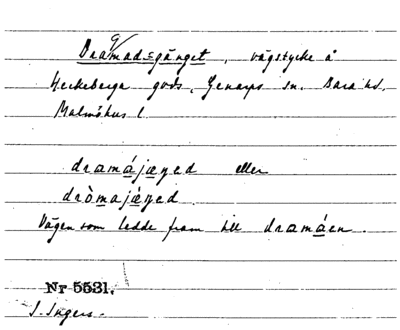 Dramad=gänget, vägstycke å
Heckeberga gods, Genarps sn. Bara hd.
Malmöhus l.
dramájæŋed eller
dròmajæŋed.
Vägen som ledde fram till dramáen.
Nr 5531.
S. Ingers.